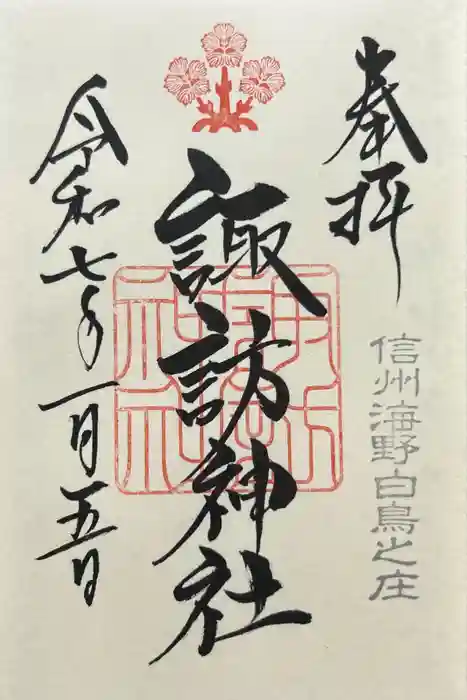 奉拝
信州海野白鳥之庄
諏訪神社
令和七年一月五日